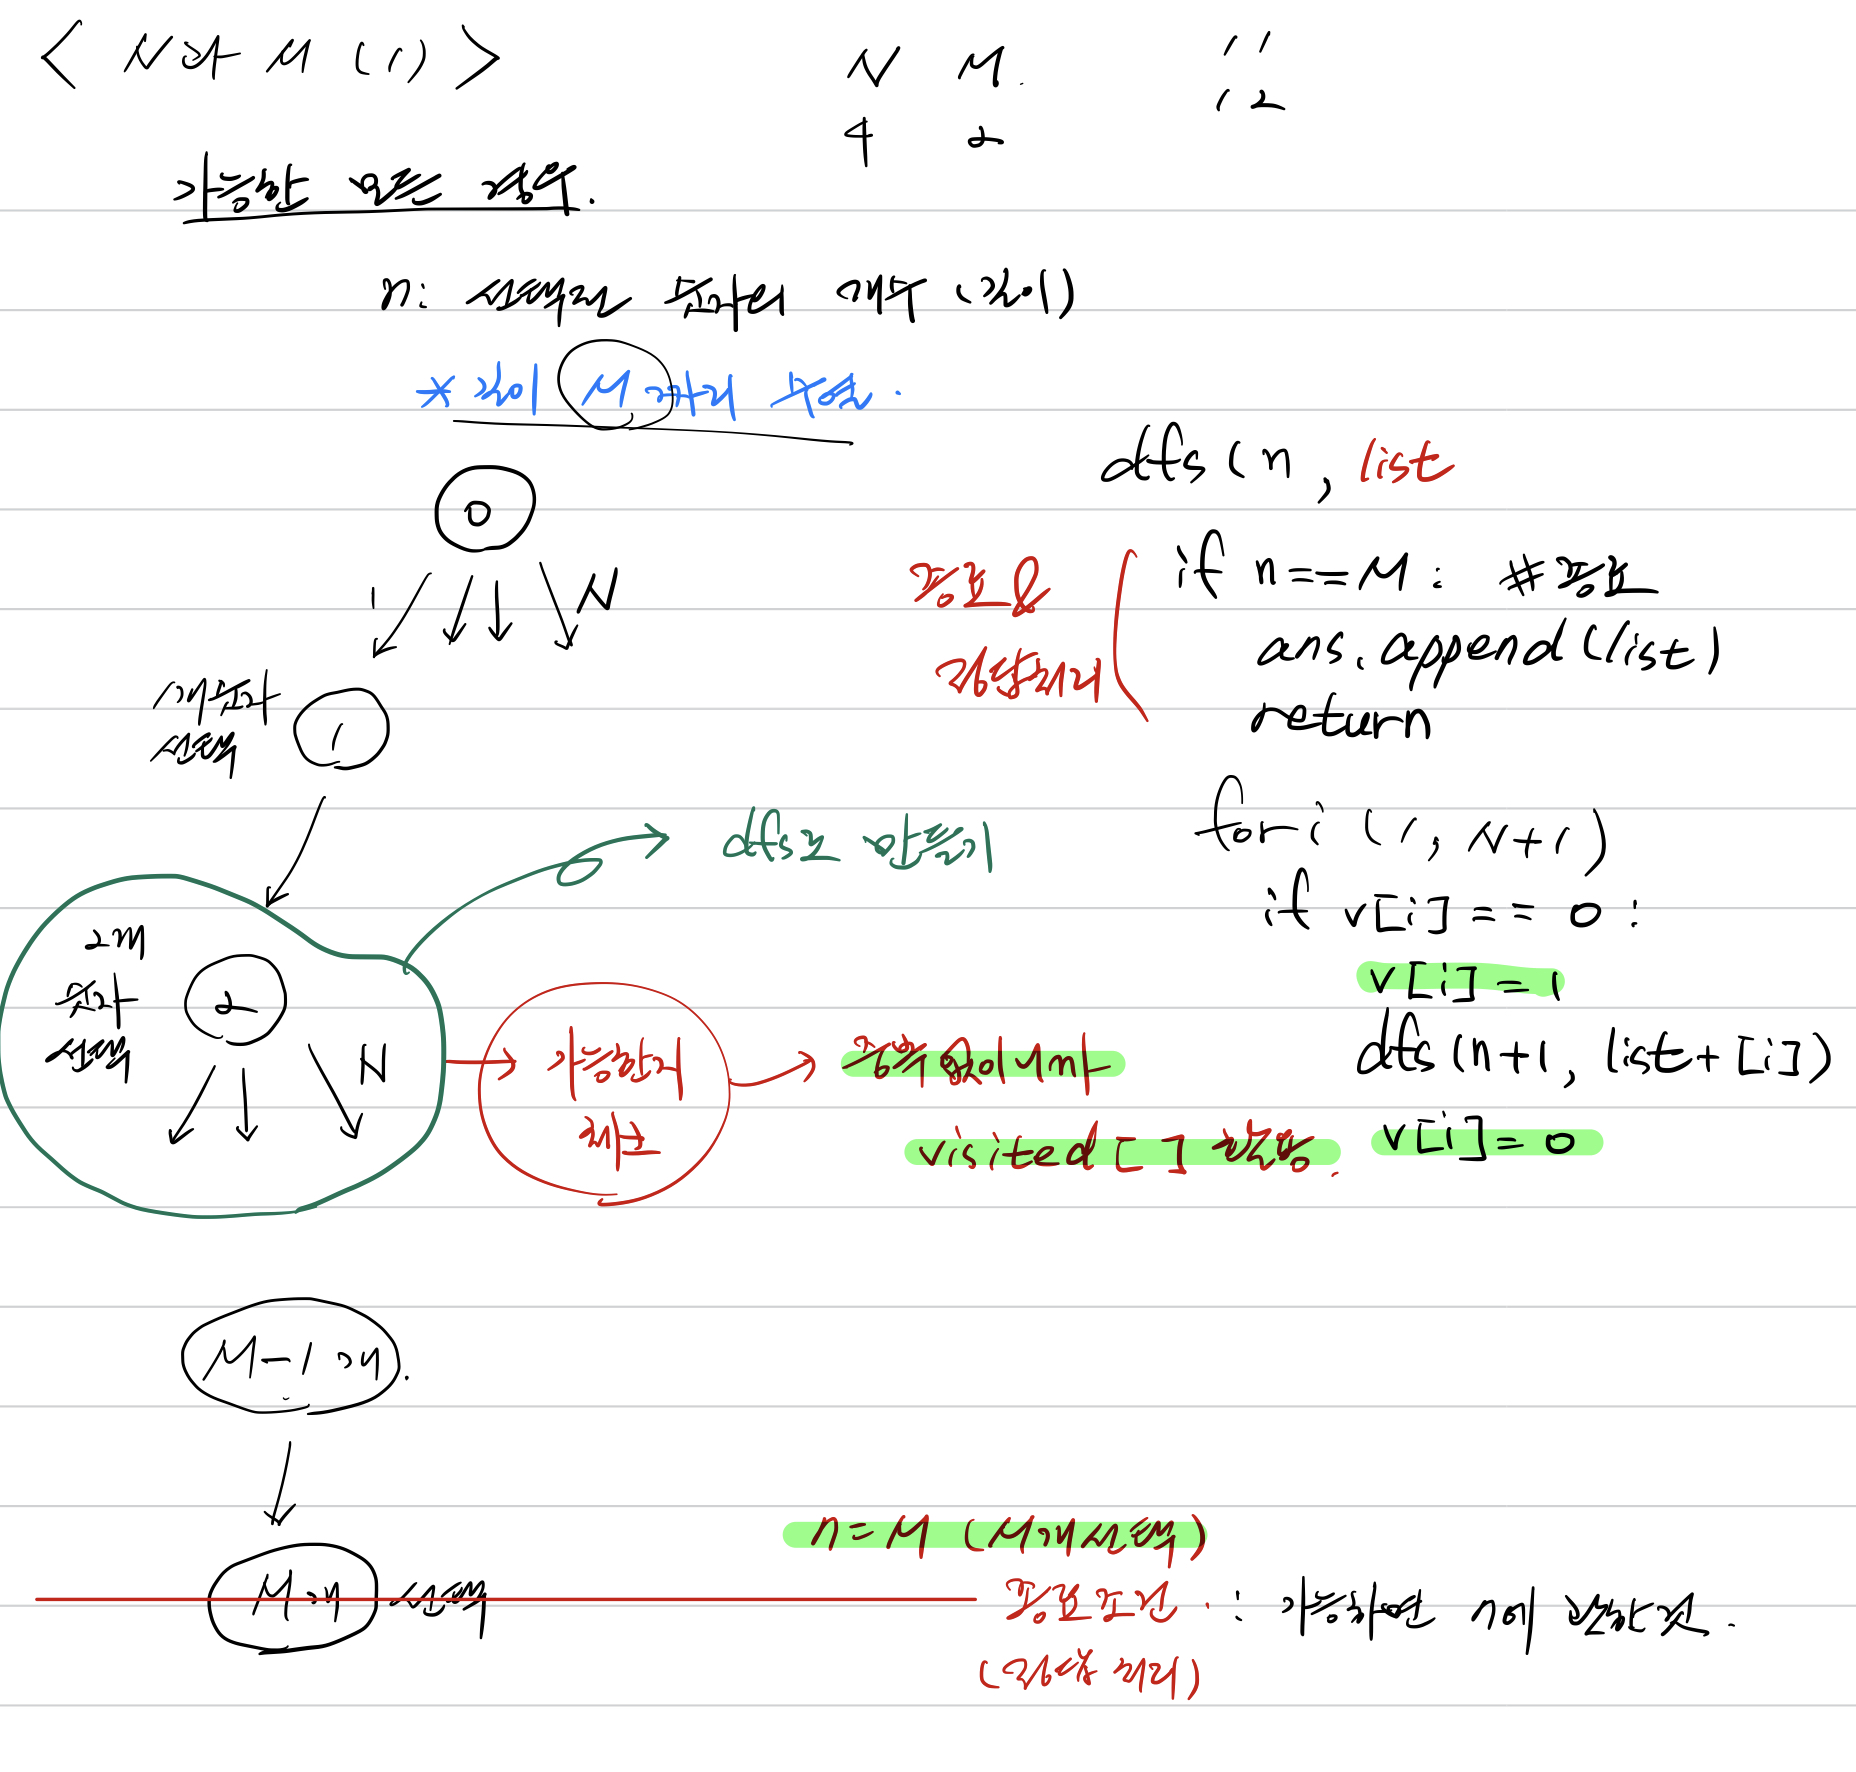 < N과 M (1) >
N M.
4 2
1 1
1 2
가능한 모든 경우.
n: 선택된 숫자의 개수 (길이)
* 길이 M까지 수열.
0
1
N
1개 숫자
선택
1
dfs로 만들기
2개
숫자
선택
2
N
가능한지
체크
중복 없이 N까
visited [ ] 활용.
M-1 개.
M개 선택
n=M (M개 선택)
종료조건. : 가능하면 n에 관한 것.
(정답 처리)
dfs (n, list
종료 &
정답처리
if n==M : #종료
ans.append(list)
return
for i (1, N+1)
if v[i] == 0 :
v[i] = 1
dfs (n+1, list+[i])
v[i] = 0